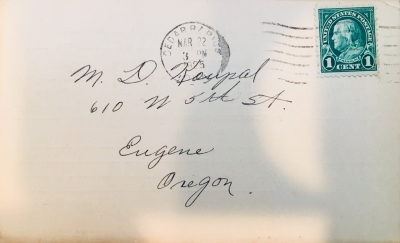 CEDAR RAPIDS
MAR 22
3 PM
UNITED STATES POSTAGE
1 CENT 1
M. D. Koupal
610 W 5th St.
Eugene
Oregon.